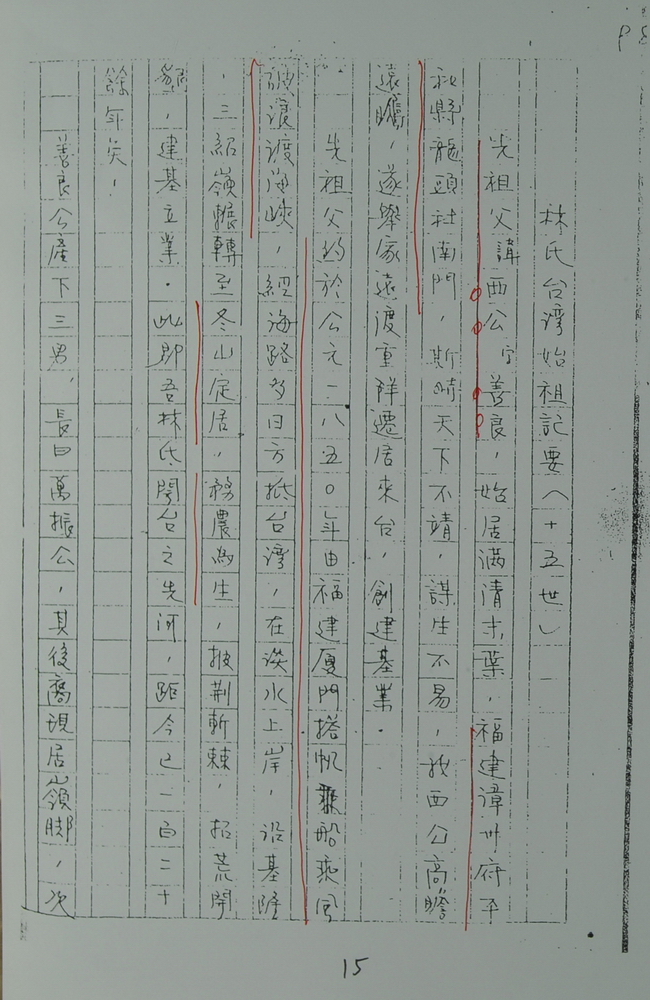 林氏台湾始祖記要(十五世)
先祖父諱西公字善良,始居满清末葉,福建漳州府平
和縣龍頭社南門,斯時天下不靖,謀生不易,我西公高瞻
遠矚,遂舉家遠渡重洋遷居來台,創建基業.
先祖父約於公元一八五0年由福建厦門搭帆船乘風
破浪渡海峽,經海路多日方抵台湾,在淡水上岸,沿基隆
,三紹嶺輾轉至冬山定居,務農為生,披荆斬棘,拓荒開
墾,建基立業.此即吾林氏開台之先河,距今已一百二十
餘年矣,
一善良公產下三男,長曰萬振公,其後裔現居嶺脚,次
15